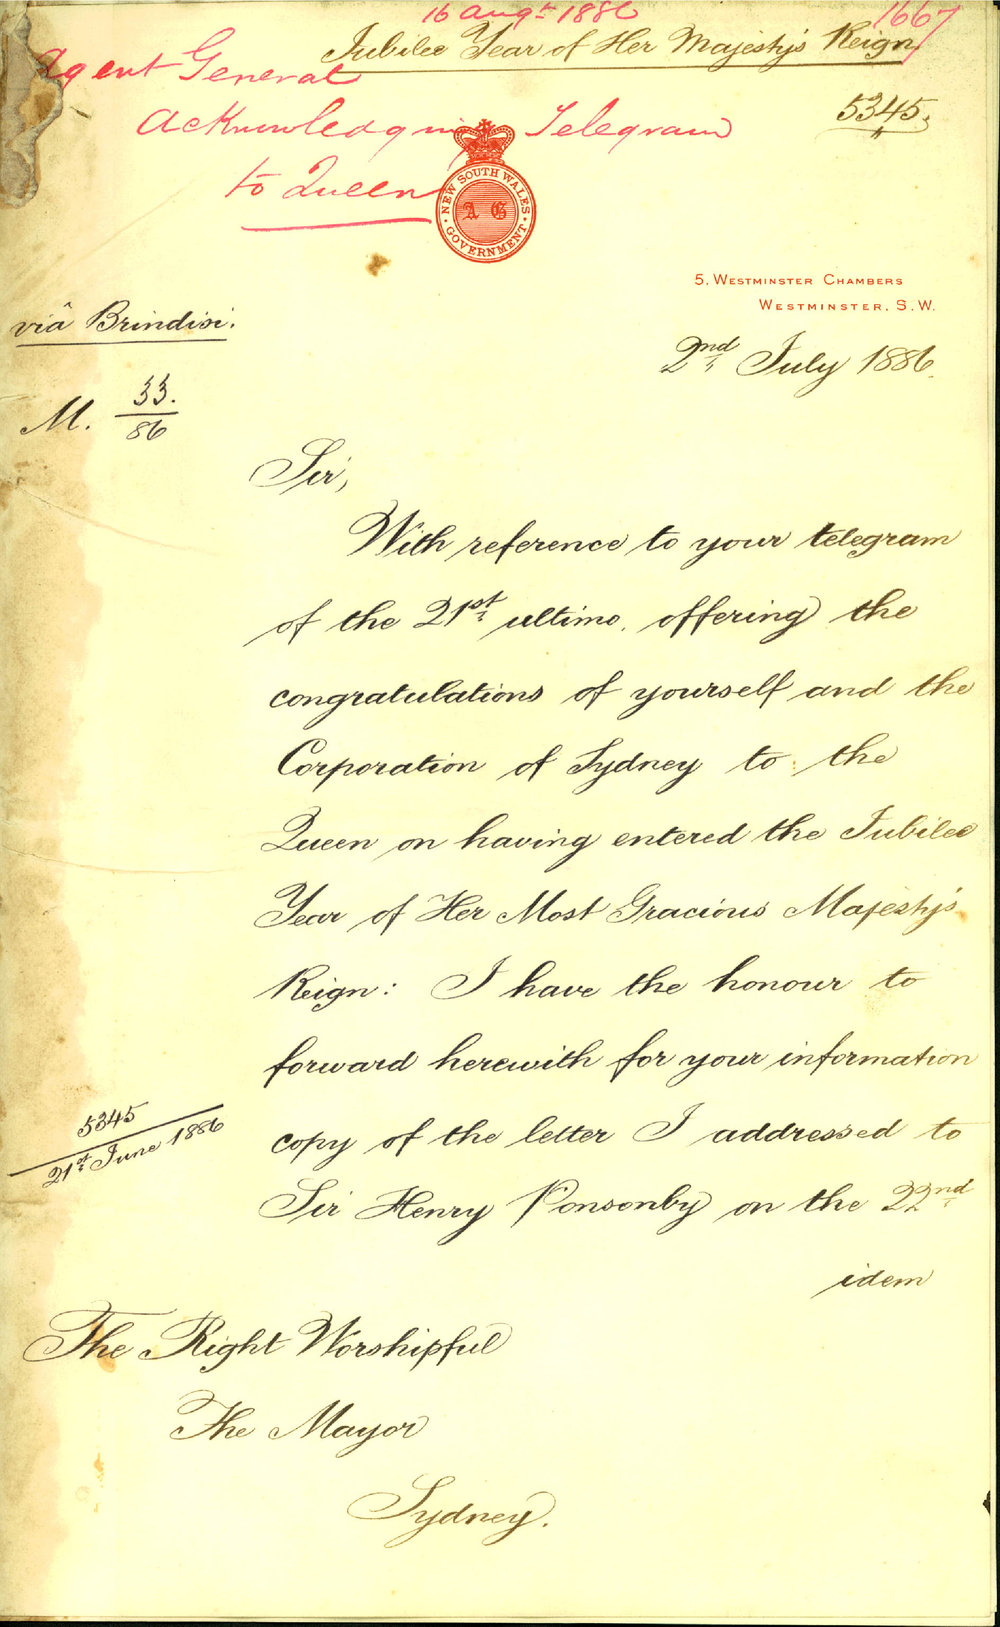 16 Augt 1886
1667
Jubilee Year of Her Majesty's Reign
Agent General
Acknowledging Telegram
to Queen
5345
NEW SOUTH WALES
A G
GOVERNMENT
5. WESTMINSTER CHAMBERS
WESTMINSTER. S.W.
viâ Brindisi.
2nd July 1886.
M. 33.
86
Sir,
With reference to your telegram
of the 21st ultimo, offering the
congratulations of yourself and the
Corporation of Sydney to the
Queen on having entered the Jubilee
Year of Her Most Gracious Majesty's
Reign: I have the honour to
forward herewith for your information
copy of the letter I addressed to
Sir Henry Ponsonby on the 22nd
idem
5345
21st June 1886
The Right Worshipful
The Mayor
Sydney.